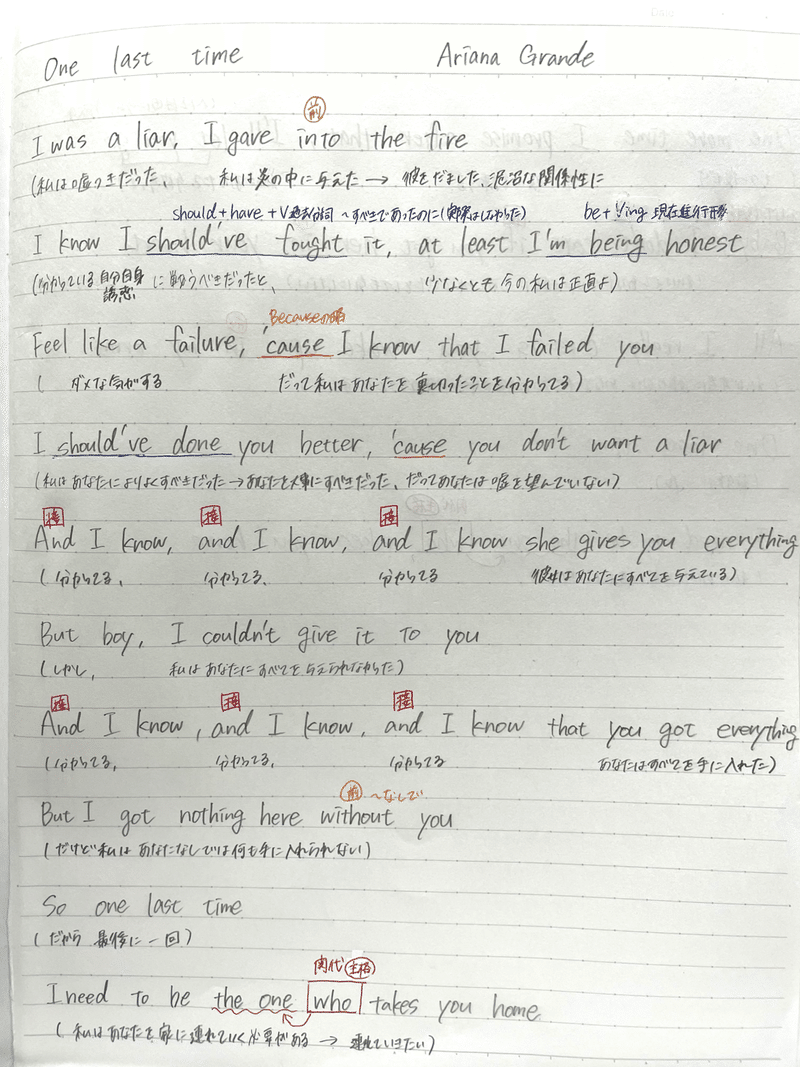 One last time Ariana Grande
前
I was a liar, I gave into the fire
(私は嘘つきだった、 私は炎の中に与えた → 彼をだました、泥沼な関係性に
should+have+V過去分詞 〜すべきであったのに(実際はしなかった) be+Ving 現在進行形
I know I should've fought it, at least I'm being honest
(分かっている 自分自身 誘惑 に戦うべきだったと、 少なくとも 今の私は正直よ)
Becauseの略
Feel like a failure, 'cause I know that I failed you
( ダメな気がする だって私はあなたを裏切ったことを分かってる)
I should've done you better, 'cause you don't want a liar
(私はあなたによりよくすべきだった→あなたを大事にすべきだった、だってあなたは嘘を望んでいない)
接 接 接
And I know, and I know, and I know she gives you everything
(分かってる、 分かってる、 分かってる 彼女はあなたにすべてを与えている)
But boy, I couldn't give it to you
(しかし、 私はあなたにすべてを与えられなかった)
接 接 接
And I know, and I know, and I know that you got everything
(分かってる、 分かってる、 分かってる あなたはすべてを手に入れた)
前 〜なしで
But I got nothing here without you
(だけど私はあなたなしでは何も手に入れられない)
So one last time
(だから 最後に一回)
関代 主格
I need to be the one who takes you home
(私はあなたを家に連れていく必要がある → 連れていきたい)